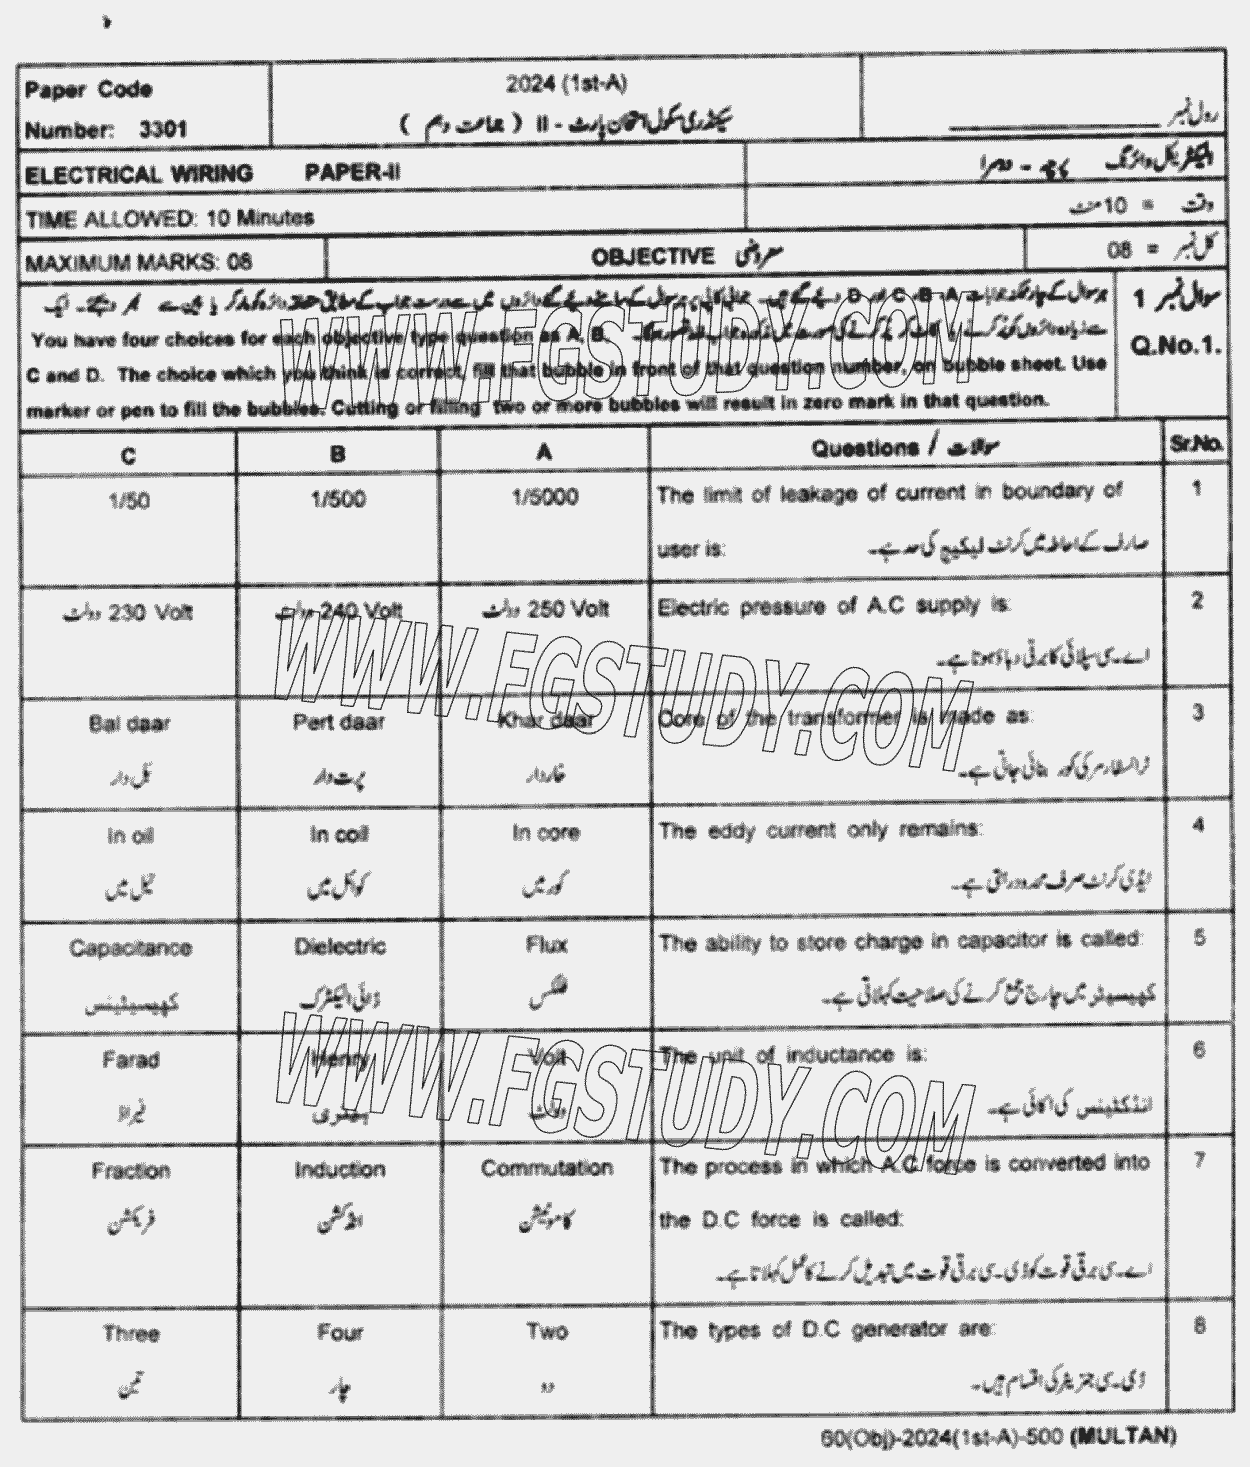 Paper Code
Number: 3301
2024 (1st-A)
سیکنڈری سکول امتحان پارٹ - II ( جماعت دہم )
رول نمبر
ELECTRICAL WIRING PAPER-II
الیکٹریکل وائرنگ پرچہ - دوسرا
TIME ALLOWED: 10 Minutes
وقت = 10 منٹ
MAXIMUM MARKS: 08
OBJECTIVE معروضی
کل نمبر = 08
سوال نمبر 1
Q.No.1.
You have four choices for each objective type question as A, B,
C and D. The choice which you think is correct, fill that bubble in front of that question number, on bubble sheet. Use
marker or pen to fill the bubbles. Cutting or filling two or more bubbles will result in zero mark in that question.
C B A Questions / سوالات Sr.No.
1/50 1/500 1/5000 The limit of leakage of current in boundary of 1
user is: صارف کے احاطہ میں کرنٹ لیکیج کی حد ہے۔
230 Volt وولٹ 240 Volt وولٹ 250 Volt وولٹ Electric pressure of A.C supply is: 2
اے۔سی سپلائی کا برقی دباؤ ہوتا ہے۔
Bal daar Pert daar Khar daar Core of the transformer is made as: 3
بَل دار پرت دار خاردار ٹرانسفارمر کی کور بنائی جاتی ہے۔
In oil In coil In core The eddy current only remains: 4
تیل میں کوائل میں کور میں ایڈی کرنٹ صرف محدود رہتی ہے۔
Capacitance Dielectric Flux The ability to store charge in capacitor is called: 5
کپیسیٹینس ڈائی الیکٹرک فلکس کپیسیٹر میں چارج جمع کرنے کی صلاحیت کہلاتی ہے۔
Farad Henry Volt The unit of inductance is: 6
فیراڈ ہینری وولٹ انڈکٹینس کی اکائی ہے۔
Fraction Induction Commutation The process in which A.C force is converted into 7
فریکشن انڈکشن کاموٹیشن the D.C force is called:
اے۔سی برقی قوت کو ڈی۔سی برقی قوت میں تبدیل کرنے کا عمل کہلاتا ہے۔
Three Four Two The types of D.C generator are: 8
تین چار دو ڈی۔سی جنریٹر کی اقسام ہیں۔
60(Obj)-2024(1st-A)-500 (MULTAN)
WWW.FGSTUDY.COM
WWW.FGSTUDY.COM
WWW.FGSTUDY.COM